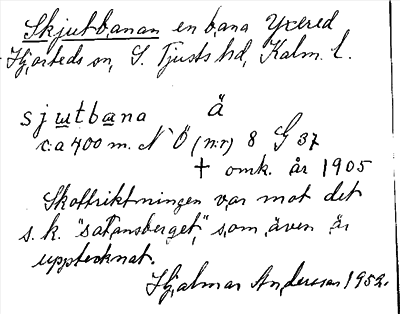 Skjutbanan en bana Yxered
Hjorteds sn, S. Tjusts hd, Kalm. l.
sjutbana Ä
c:a 400 m. N Ö (nr) 8 G 37
† omk. år 1905
Skottriktningen var mot det
s.k. "satansberget", som även är
upptecknat.
Hjalmar Andersson 1952.